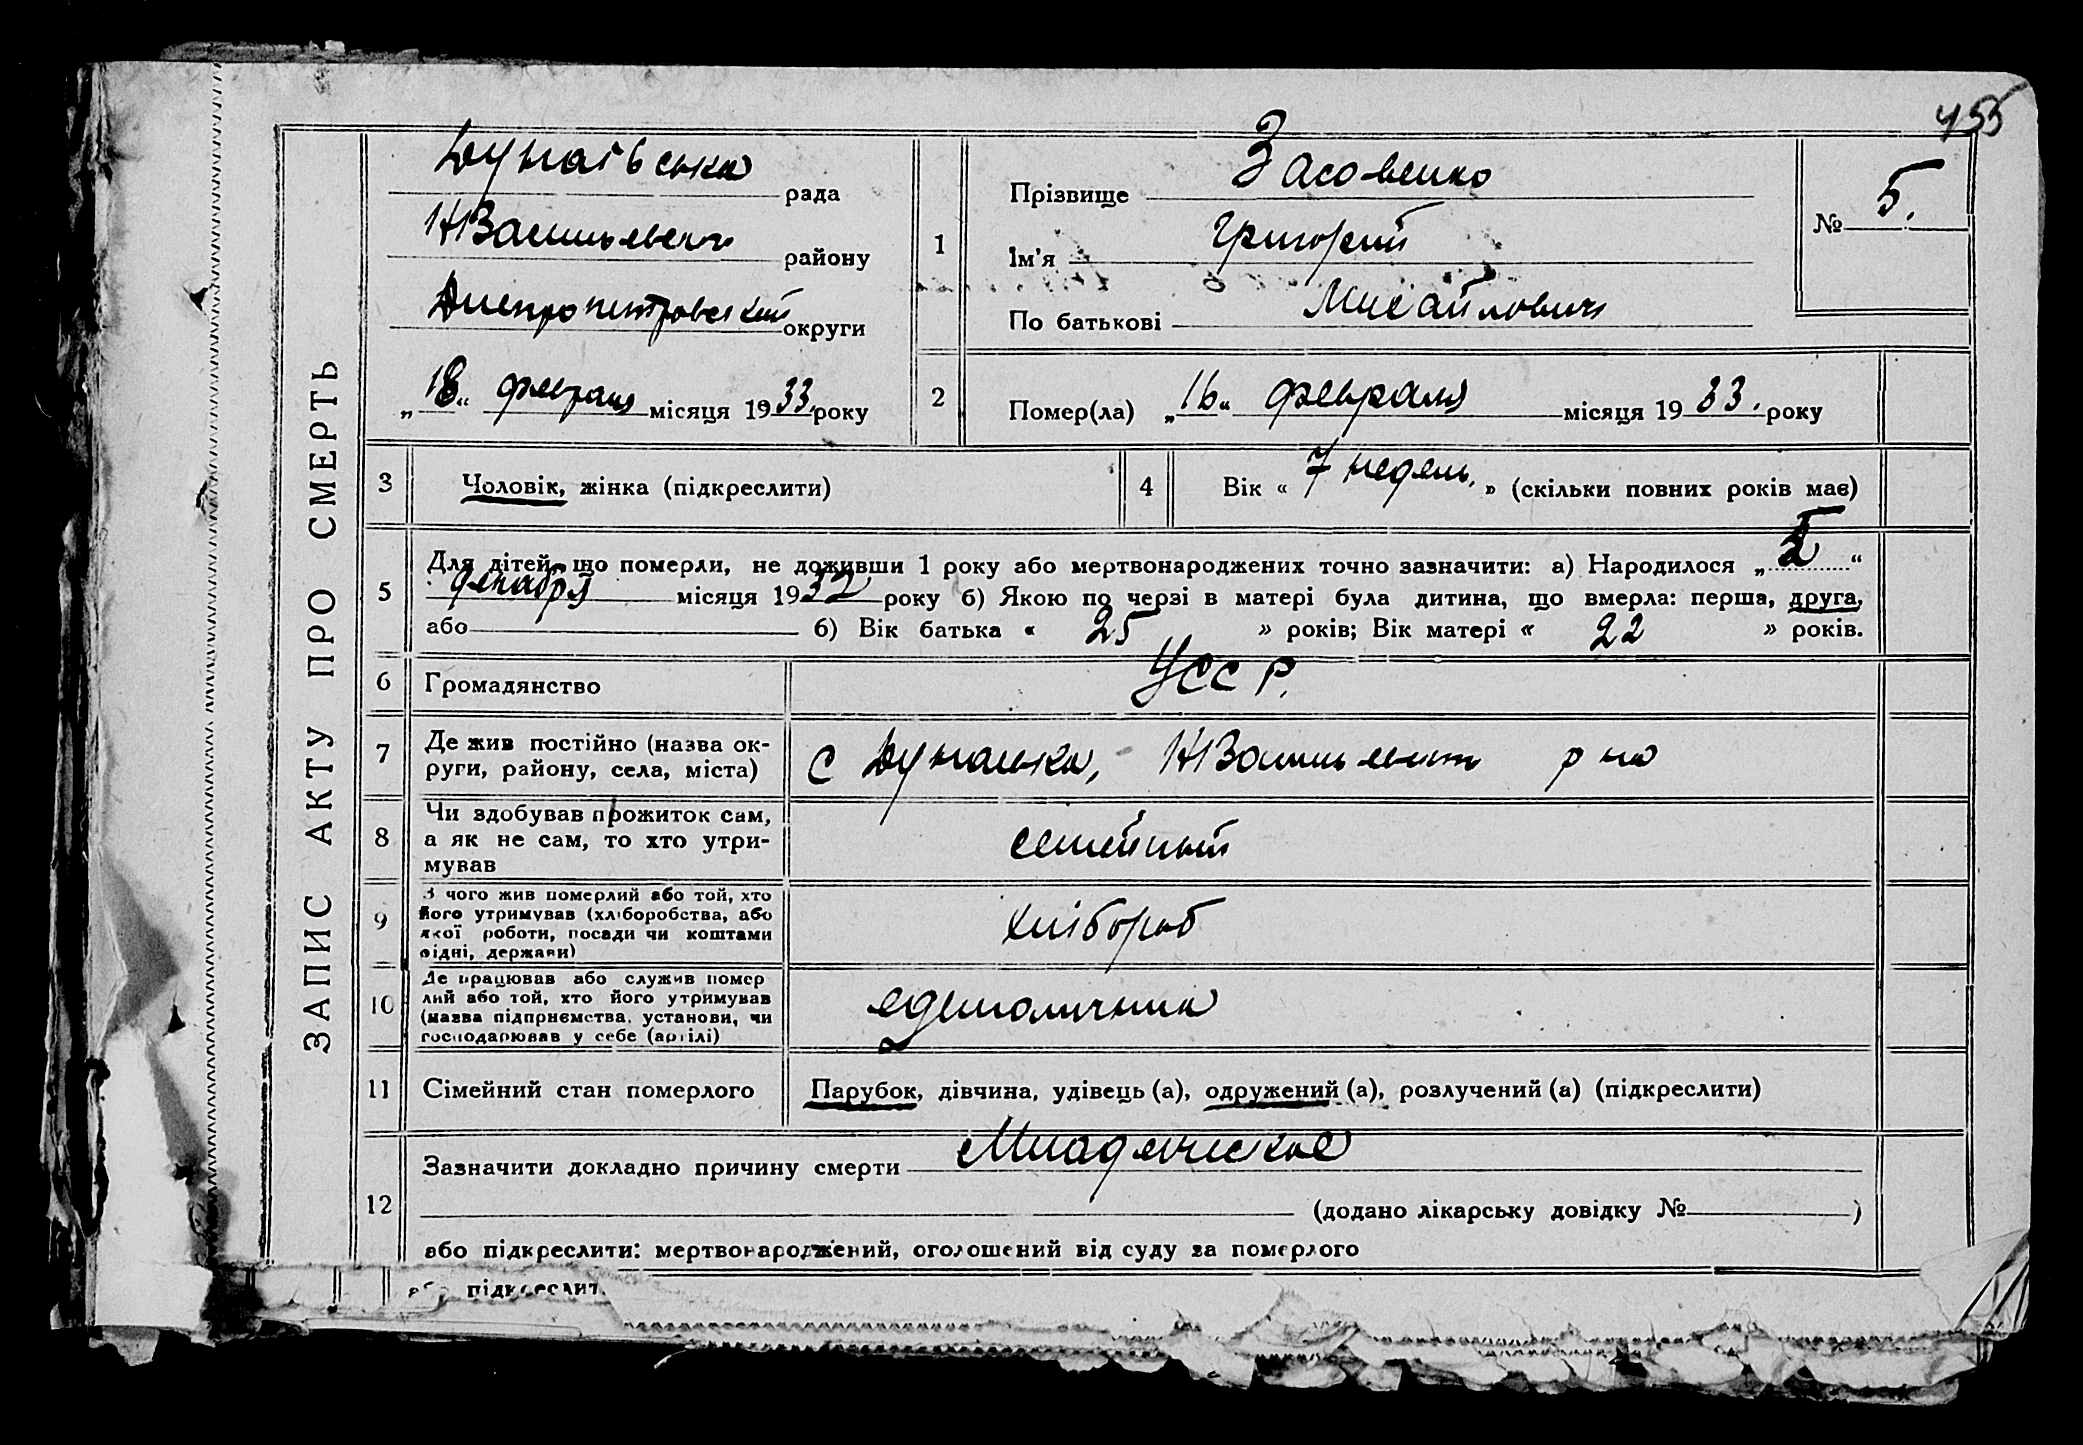 455
Дунаівська рада
НВасильевск району
Днепропетровский округи
„18“ февраля місяця 1933 року
1
Прізвище Засовенко
Ім'я Григорий
По батькові Михайлович
№ 5.
2
Помер(ла) „16“ февраля місяця 1933. року
ЗАПИС АКТУ ПРО СМЕРТЬ
3 Чоловік, жінка (підкреслити)
4 Вік « 7 недель. » (скільки повних років має)
5
Для дітей, що померли, не доживши 1 року або мертвонароджених точно зазначити: а) Народилося „ “
декабря місяця 1932 року б) Якою по черзі в матері була дитина, що вмерла: перша, друга,
або б) Вік батька « 25 » років; Вік матері « 22 » років.
6 Громадянство УССР.
7
Де жив постійно (назва ок-
руги, району, села, міста)
с Дунаевка, НВасильевск р на
8
Чи здобував прожиток сам,
а як не сам, то хто утри-
мував
семейный
9
З чого жив померлий або той, хто
його утримував (хліборобства, або
якої роботи, посади чи коштами
рідні, держави)
хлібороб
10
Де працював або служив помер
лий або той, хто його утримував
(назва підприємства, установи, чи
господарював у себе (артілі)
единоличник
11 Сімейний стан померлого Парубок, дівчина, удівець (а), одружений (а), розлучений (а) (підкреслити)
12
Зазначити докладно причину смерти Младенческое
(додано лікарську довідку № )
або підкреслити: мертвонароджений, оголошений від суду за померлого
або підкреслит